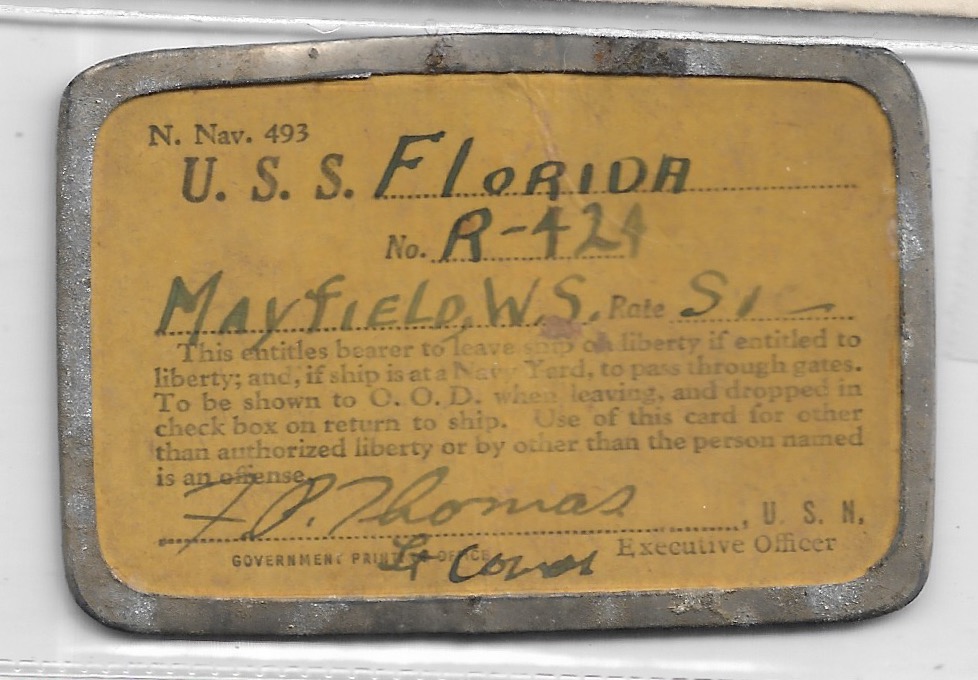 N. Nav. 493
U. S. S. FLORIDA
No. R-424
MAYFIELD, W.S. Rate S1 —
This entitles bearer to leave ship on liberty if entitled to
liberty; and, if ship is at a Navy Yard, to pass through gates.
To be shown to O. O. D. when leaving, and dropped in
check box on return to ship. Use of this card for other
than authorized liberty or by other than the person named
is an offense.
F.P. Thomas, U. S. N.
Lt Comdr Executive Officer
GOVERNMENT PRINTING OFFICE